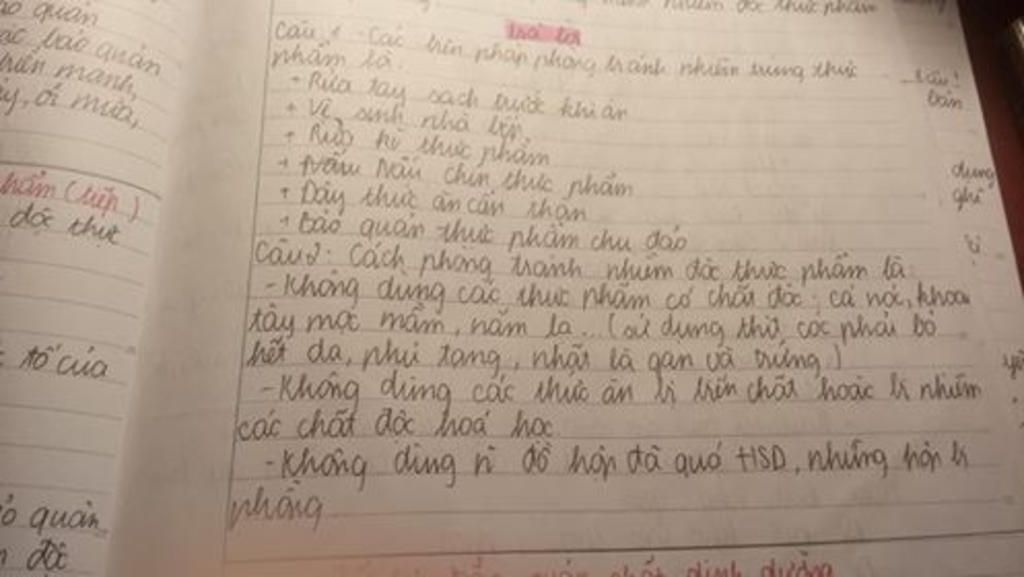 nhiễm độc thực phẩm
Trả lời
Câu 1: Các biện pháp phòng tránh nhiễm trùng thực
phẩm là:
+ Rửa tay sạch trước khi ăn
+ Vệ sinh nhà bếp
+ Rửa kĩ thực phẩm
+ Nấu chín thực phẩm
+ Đậy thức ăn cẩn thận
+ Bảo quản thực phẩm chu đáo
Câu 2: Cách phòng tránh nhiễm độc thực phẩm là:
- Không dùng các thực phẩm có chất độc: cá nóc, khoai
tây mọc mầm, nấm lạ... (sử dụng thịt cóc phải bỏ
hết da, phủ tạng, nhất là gan và trứng)
- Không dùng các thức ăn bị biến chất hoặc bị nhiễm
các chất độc hoá học
- Không dùng n đồ hộp đã quá HSD, những hộp bị
phồng
ảo quản
bảo quản
mạnh,
ôi mưa,
phẩm (tiếp)
độc thực
tố của
quản
độc
bản
dụng
ghi
bị
chất dinh dưỡng